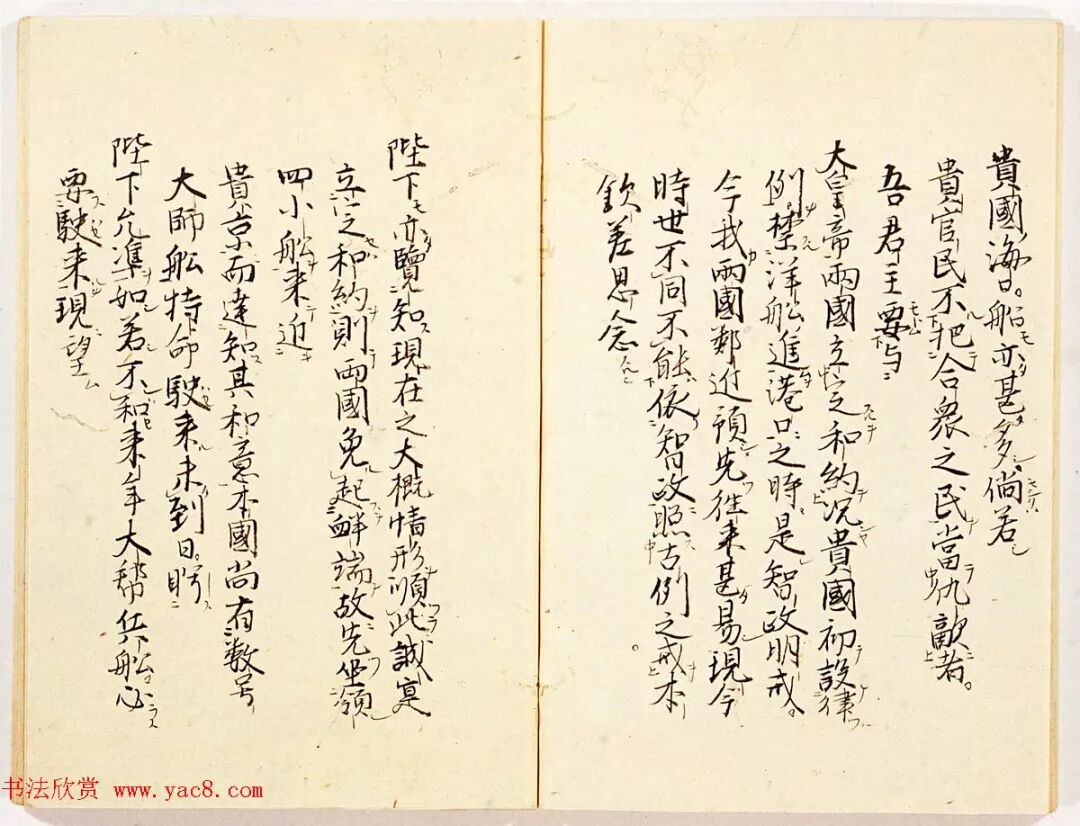 貴國海口。船亦甚多倘若
貴官民不把合衆之民當仇敵者。
吾君主要与
大皇帝兩國立定和約况貴國初設律
例。禁洋船進港口之時是智政明戒。
今我兩國鄰近領先徃来甚易現今
時世不同不能依智政照古例之戒本
欽差思念
陛下亦覽知現在之大概情形順此誠寔
立定之和約則兩國免起衅端故先坐領
四小船来近
貴京而達知其和意本國尚有数号
大師船特命駛来未到日。盼
陛下允準如若不和来年大帮兵船必
要駛来現望
书法欣赏 www.yac8.com